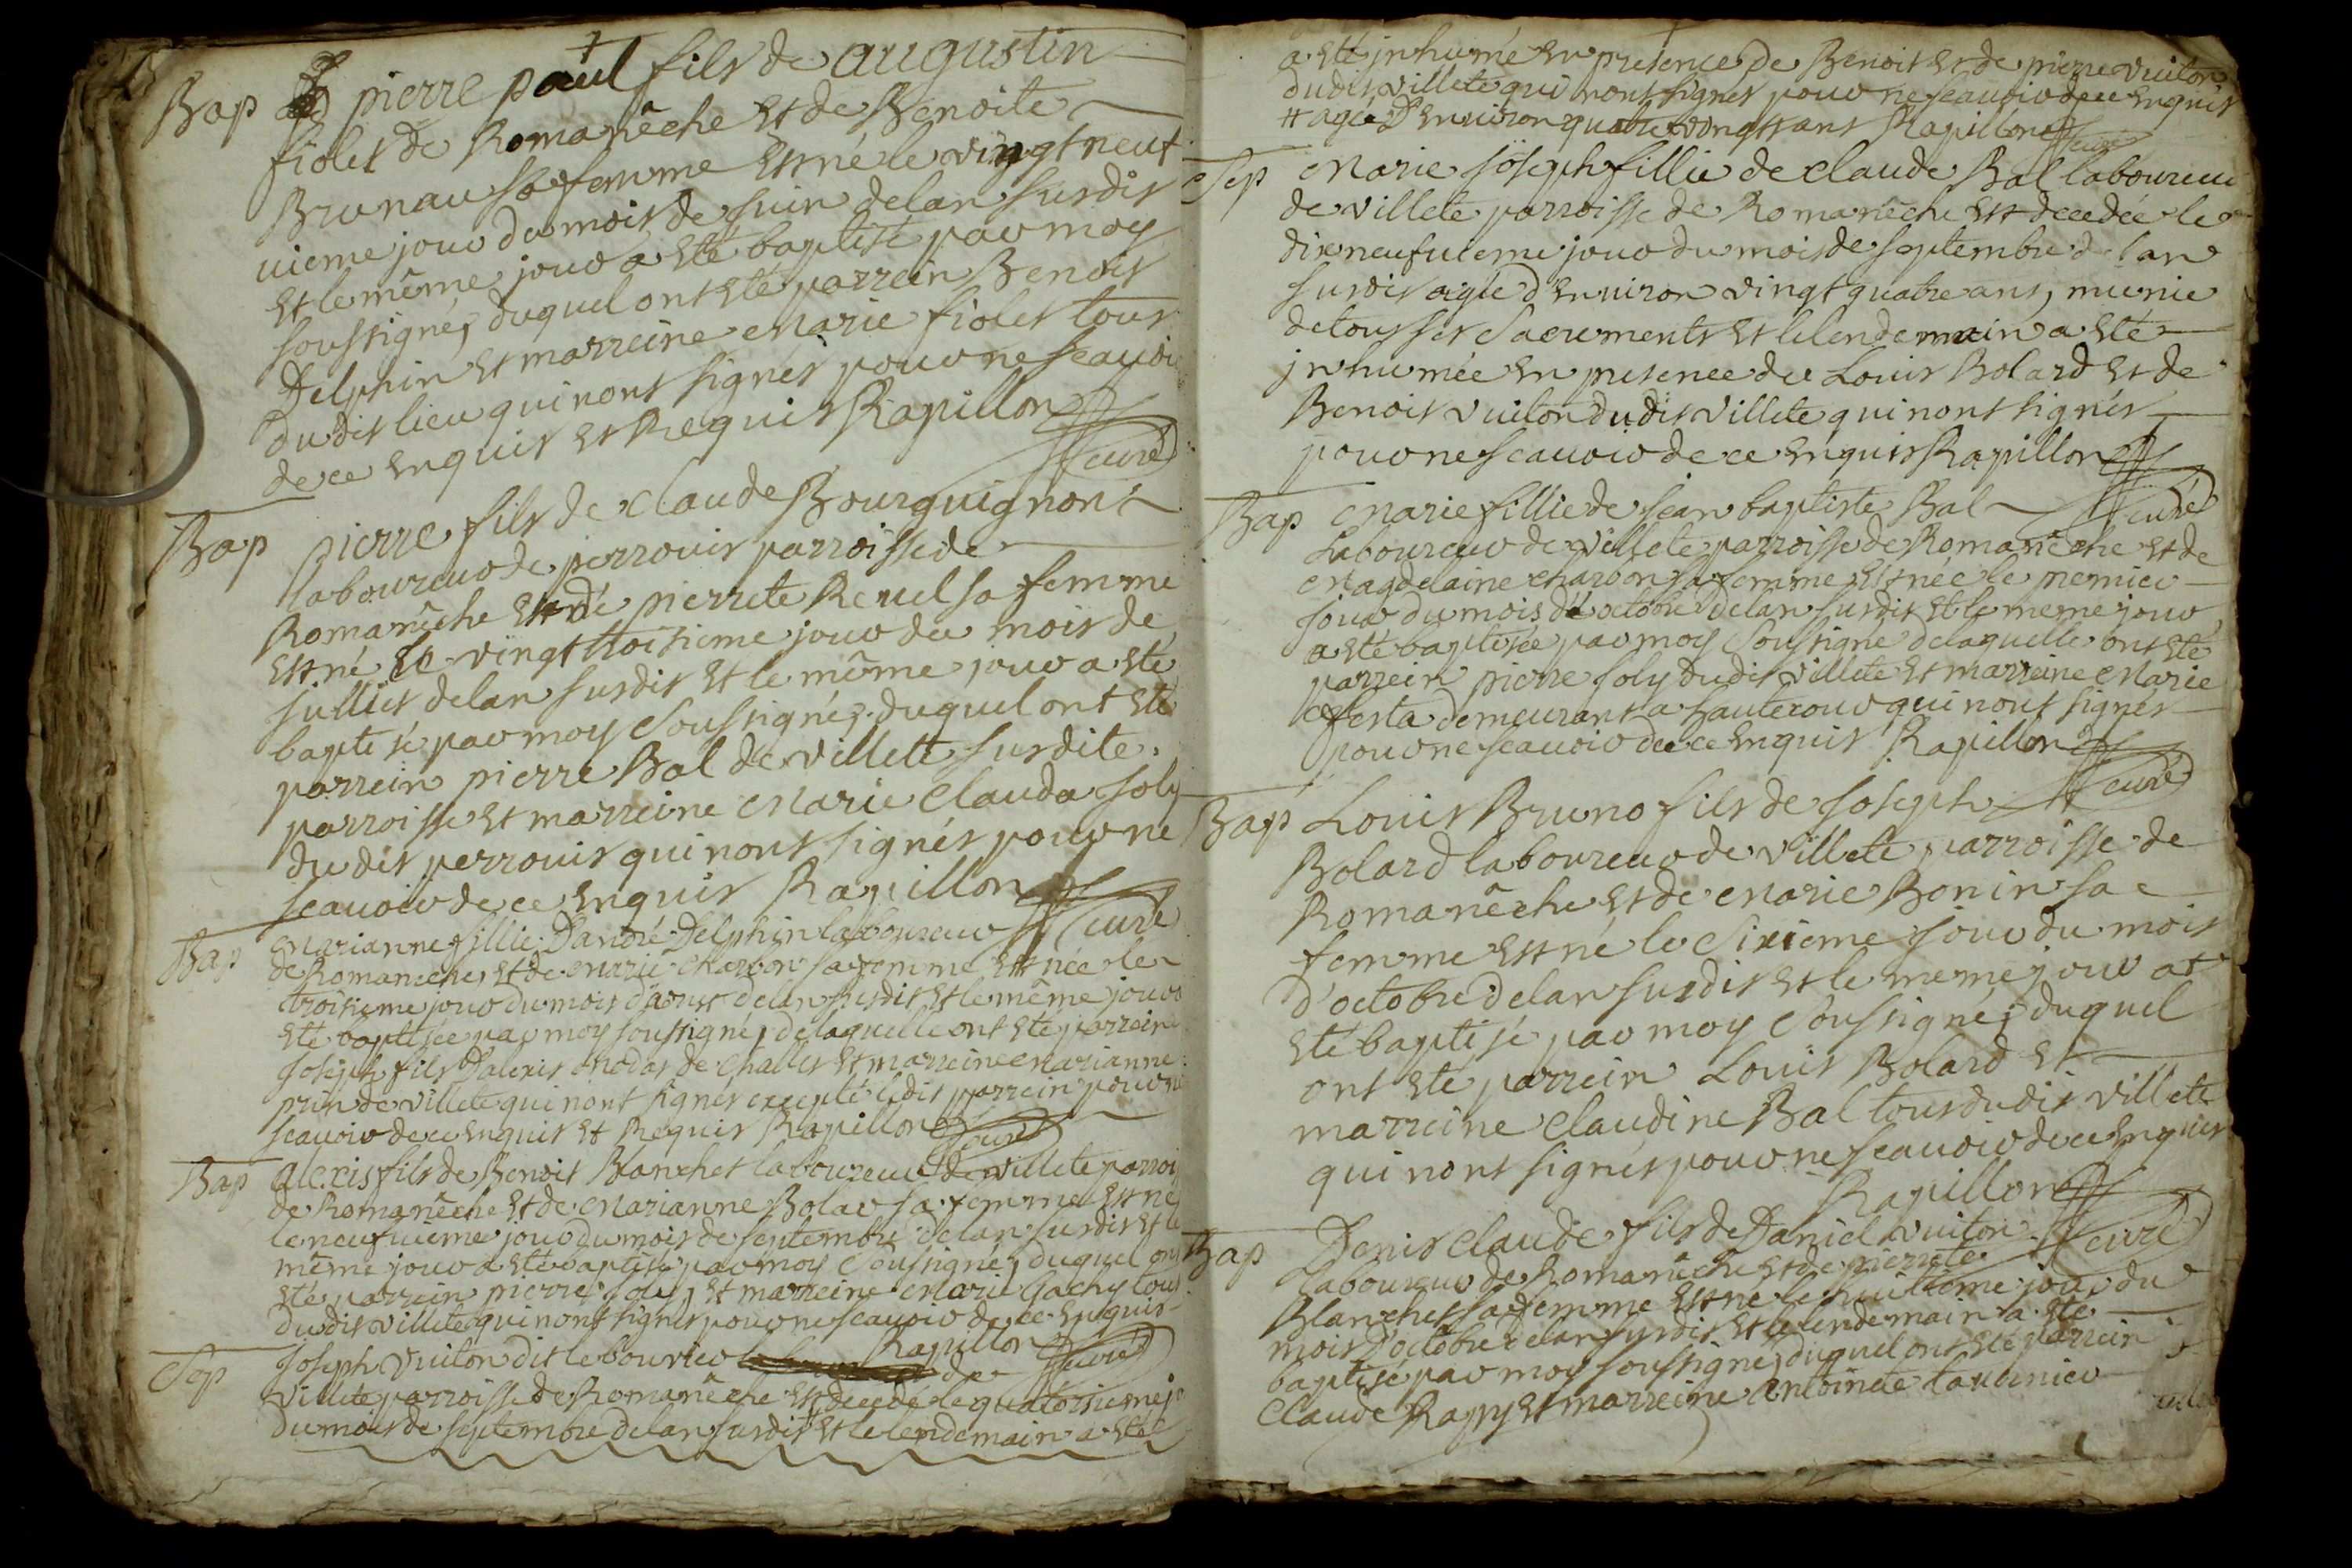 Bap pierre paul fils de augustin
fiolet de Romanêche et de Benoite
Brunau sa femme est né le vingt neuf
vieme jour du mois de juin de lan susdit
et le même jour a eté baptisé par moy
soussigné, duquel ont eté parrein Benoit
Delphin et marreine Marie fiolet tous
dudit lieu qui nont signés pour ne scavoir
de ce enquis et Requis Rapillon
curé
Bap pierre fils de claude Bourguignon
laboureur de perrouis parroisse de
Romanêche et de pierrete Revel sa femme
est né le vingt troisieme jour du mois de
julliet de lan susdit et le même jour a eté
baptisé par moy soussigné, duquel ont eté
parrein pierre Bal de villete susdite
parroisse et marreine Marie clauda joly
du dit perrouis qui nont signés pour ne
scavoir de ce enquis Rapillon
curé
Bap Marianne fillie D'andré Delphin laboureur
de Romaneche, et de Marie charbon sa femme est née le
troisieme jour du mois d'aoust de lan susdit et le même jour
eté baptisée par moy soussigné, de laquelle ont eté parrein
joseph fils D'alexis Modas de challes et marreine Marianne
prin de villete qui nont signés excepté ledit parrein pour ne
scavoir de ce enquis et Requis Rapillon curé
Bap alexis fils de Benoit Blanchet laboureur de villete parroi
de Romanêche et de Marianne Bolar sa femme est né
le neufvieme jour du mois de septembre de lan susdit et le
même jour a eté baptisé par moy soussigné, duquel ont
eté parrein pierre joly, et marreine Marie Gachy tous
dudit villete qui nont signés pour ne scavoir de ce enquis
Rapillon curé
Sep joseph vuiton dit le bouvier de
villete parroisse de Romanêche est decedé le quatorsieme j
du mois de septembre de lan susdit et le lendemain a eté
a eté inhumé en presence de Benoit et de pierre vuiton
dudit villete qui nont signés pour ne scavoir de ce enquis
# agé D'environ quatre vingts ans Rapillon curé
Sep Marie joseph fillie de claude Bal laboureur
de villete parroisse de Romanêche est decedée le
dix neufvieme jour du mois de septembre de lan
susdit agée d'environ vingt quatre ans, munie
de tous ses sacrements et le lendemain a eté
inhumée en presence de Louis Bolard et de
Benoit vuiton dudit villete qui nont signés
pour ne scavoir de ce enquis Rapillon
curé
Bap Marie fillie de jean baptiste Bal
Laboureur de villete parroisse de Romanêche et de
Magdelaine charbon sa femme est née le premier
jour du mois d'octobre de lan susdit et le meme jour
a eté baptisée par moy soussigné de laquelle ont eté
parrein pierre joly dudit villete et marreine Marie
festa demeurant a hautecour qui nont signés
pour ne scavoir de ce enquis Rapillon
curé
Bap Louis Bruno fils de joseph
Bolard laboureur de villete parroisse de
Romanêche et de Marie Bonin sa
femme est né le sixieme jour du mois
d'octobre de lan susdit et le meme jour at
eté baptisé par moy soussigné, duquel
ont eté parrein Louis Bolard et
marreine claudine Bal tous dudit villete
qui nont signés pour ne scavoir de ce enquis
Rapillon
curé
Bap Denis claude fils de Daniel vuiton
laboureur de Romanêche et de pierrete
Blanchet sa femme est né le huitieme jour du
mois d'octobre de lan susdit et le lendemain a eté
baptisé par moy soussigné, duquel ont eté parrein
claude Rapy et marreine antoinete taubnier